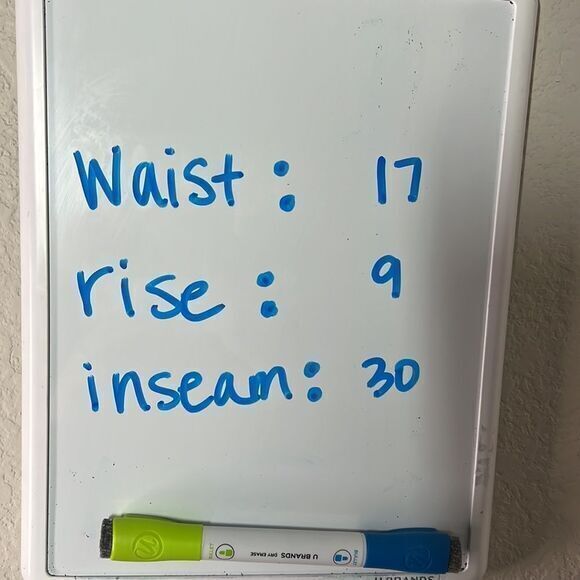 Waist : 17
rise : 9
inseam: 30
U BRANDS DRY ERASE